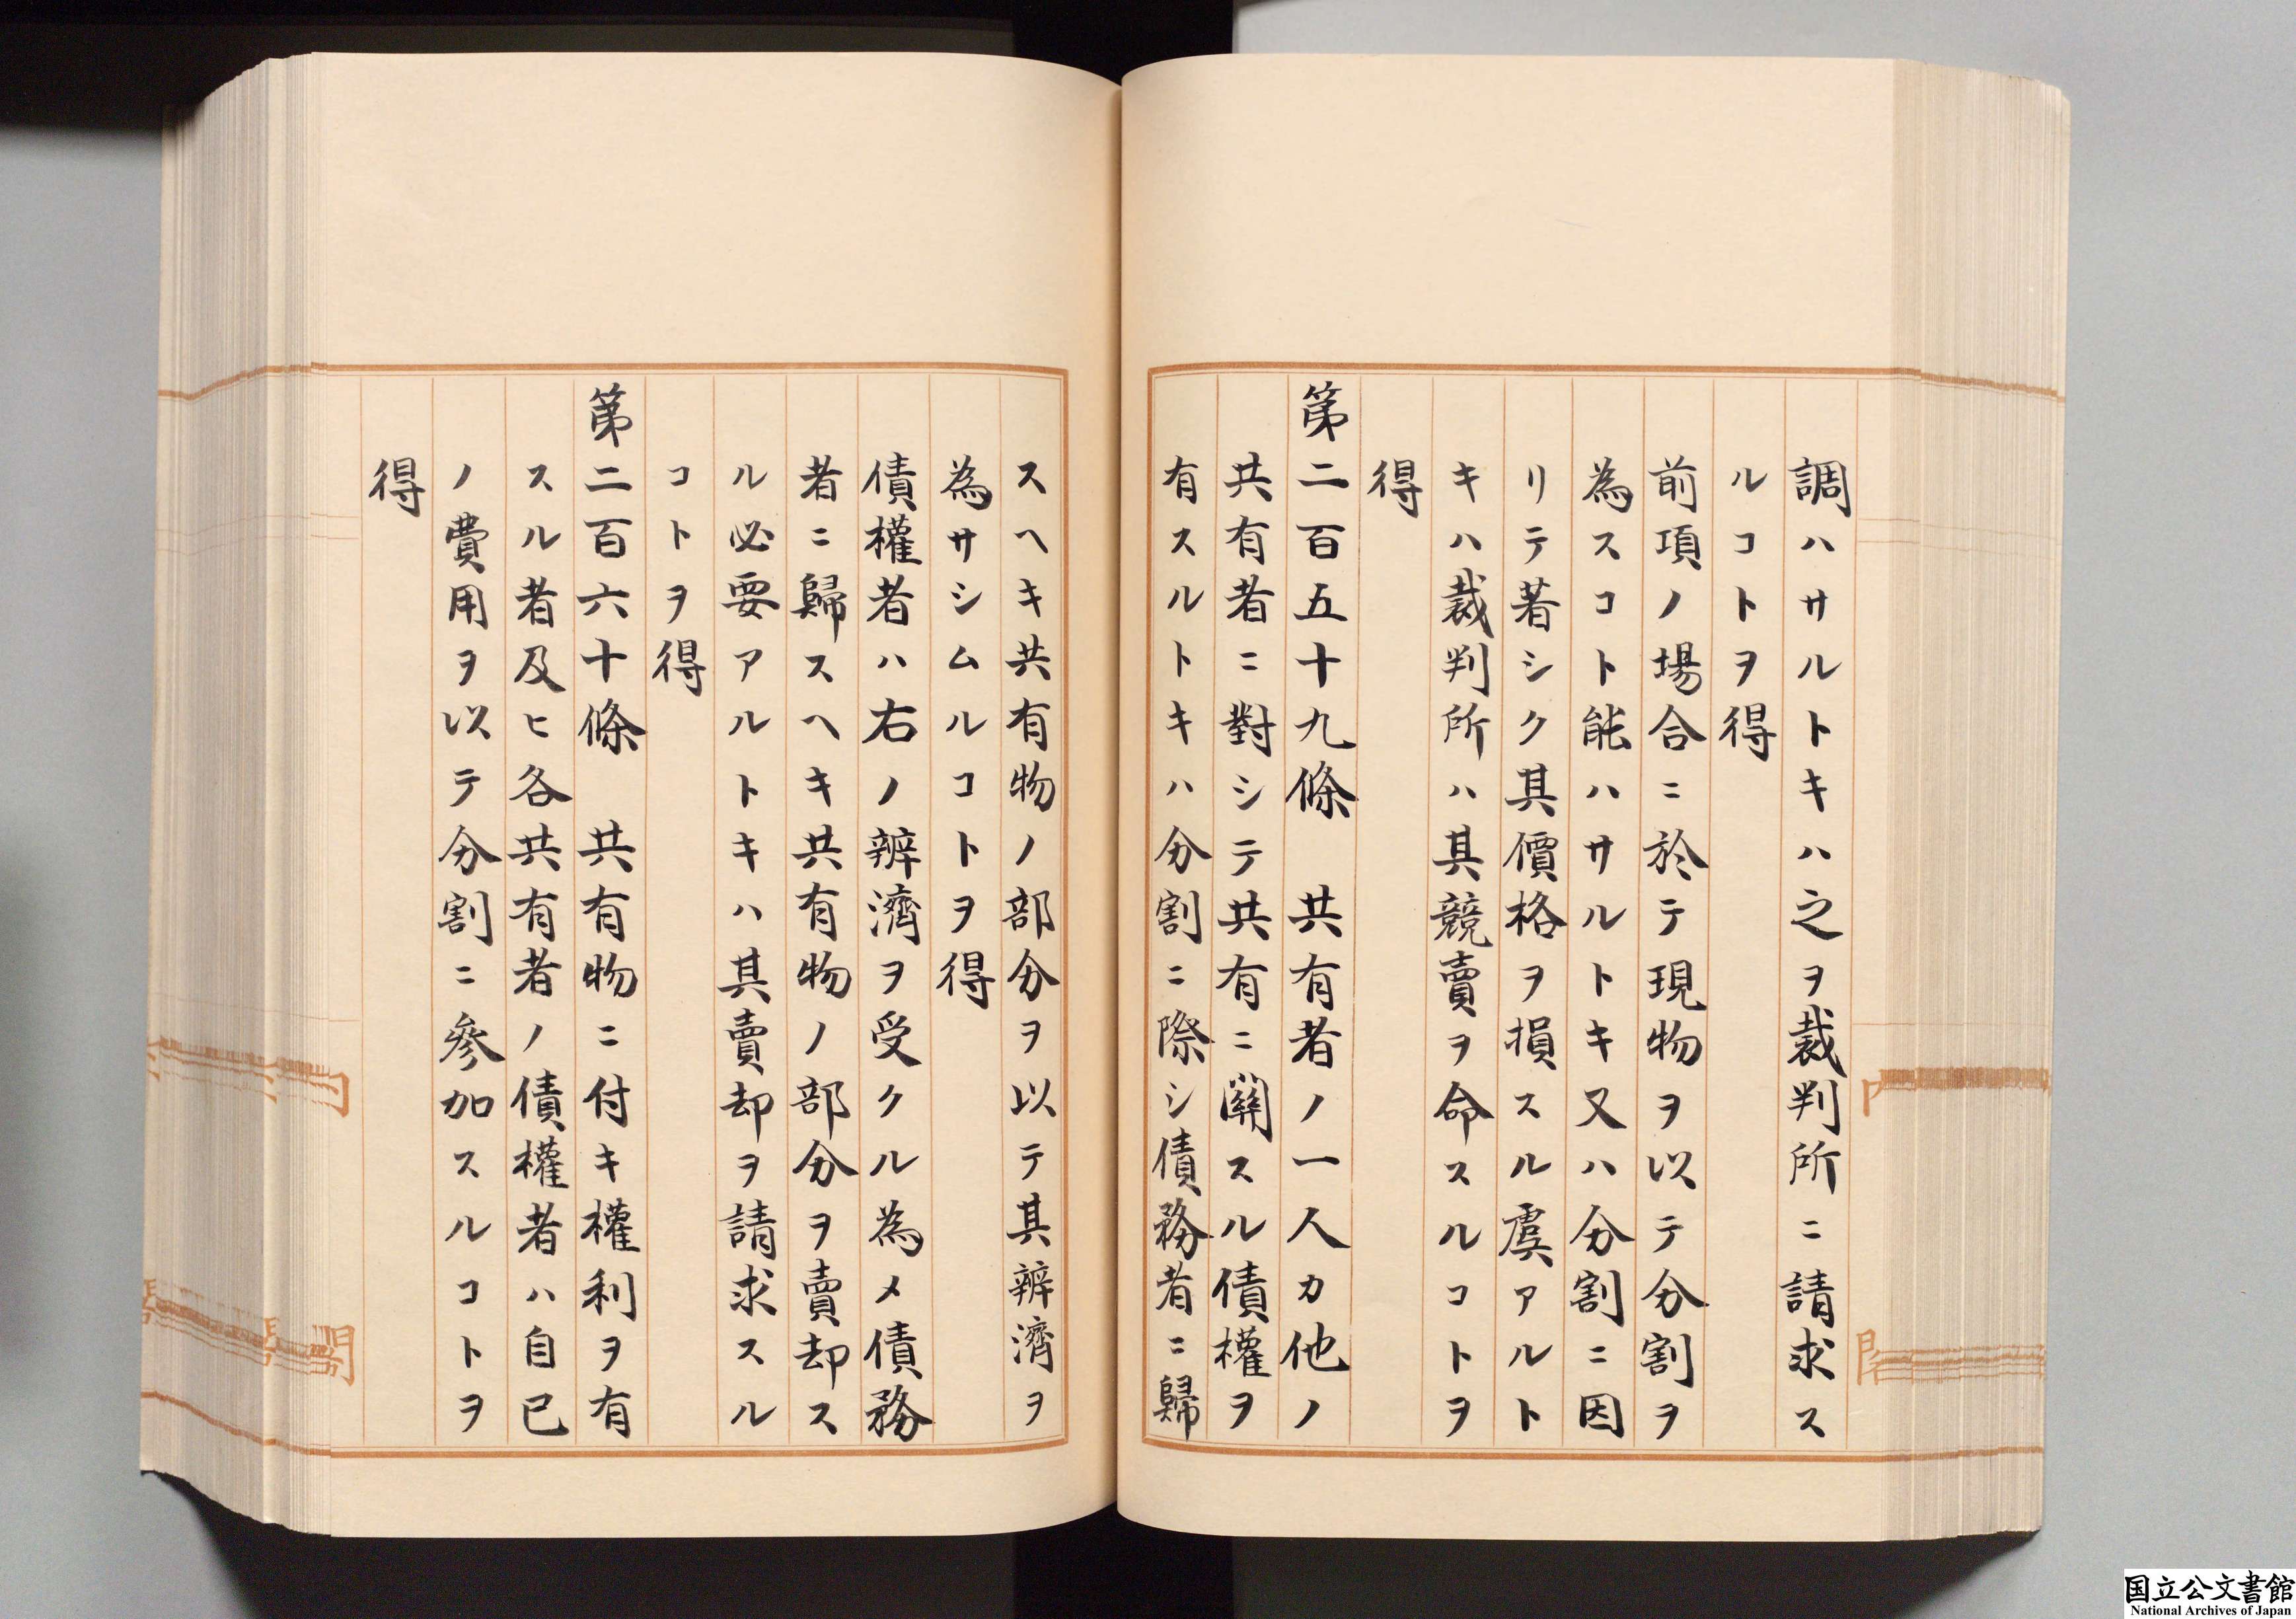 調ハサルトキハ之ヲ裁判所ニ請求ス
ルコトヲ得
前項ノ場合ニ於テ現物ヲ以テ分割ヲ
為スコト能ハサルトキ又ハ分割ニ因
リテ著シク其價格ヲ損スル虞アルト
キハ裁判所ハ其競賣ヲ命スルコトヲ
得
第二百五十九條　共有者ノ一人カ他ノ
共有者ニ對シテ共有ニ關スル債權ヲ
有スルトキハ分割ニ際シ債務者ニ歸
スヘキ共有物ノ部分ヲ以テ其辨濟ヲ
為サシムルコトヲ得
債權者ハ右ノ辨濟ヲ受クル為メ債務
者ニ歸スヘキ共有物ノ部分ヲ賣却ス
ル必要アルトキハ其賣却ヲ請求スル
コトヲ得
第二百六十條　共有物ニ付キ權利ヲ有
スル者及ヒ各共有者ノ債權者ハ自己
ノ費用ヲ以テ分割ニ參加スルコトヲ
得
国立公文書館
National Archives of Japan